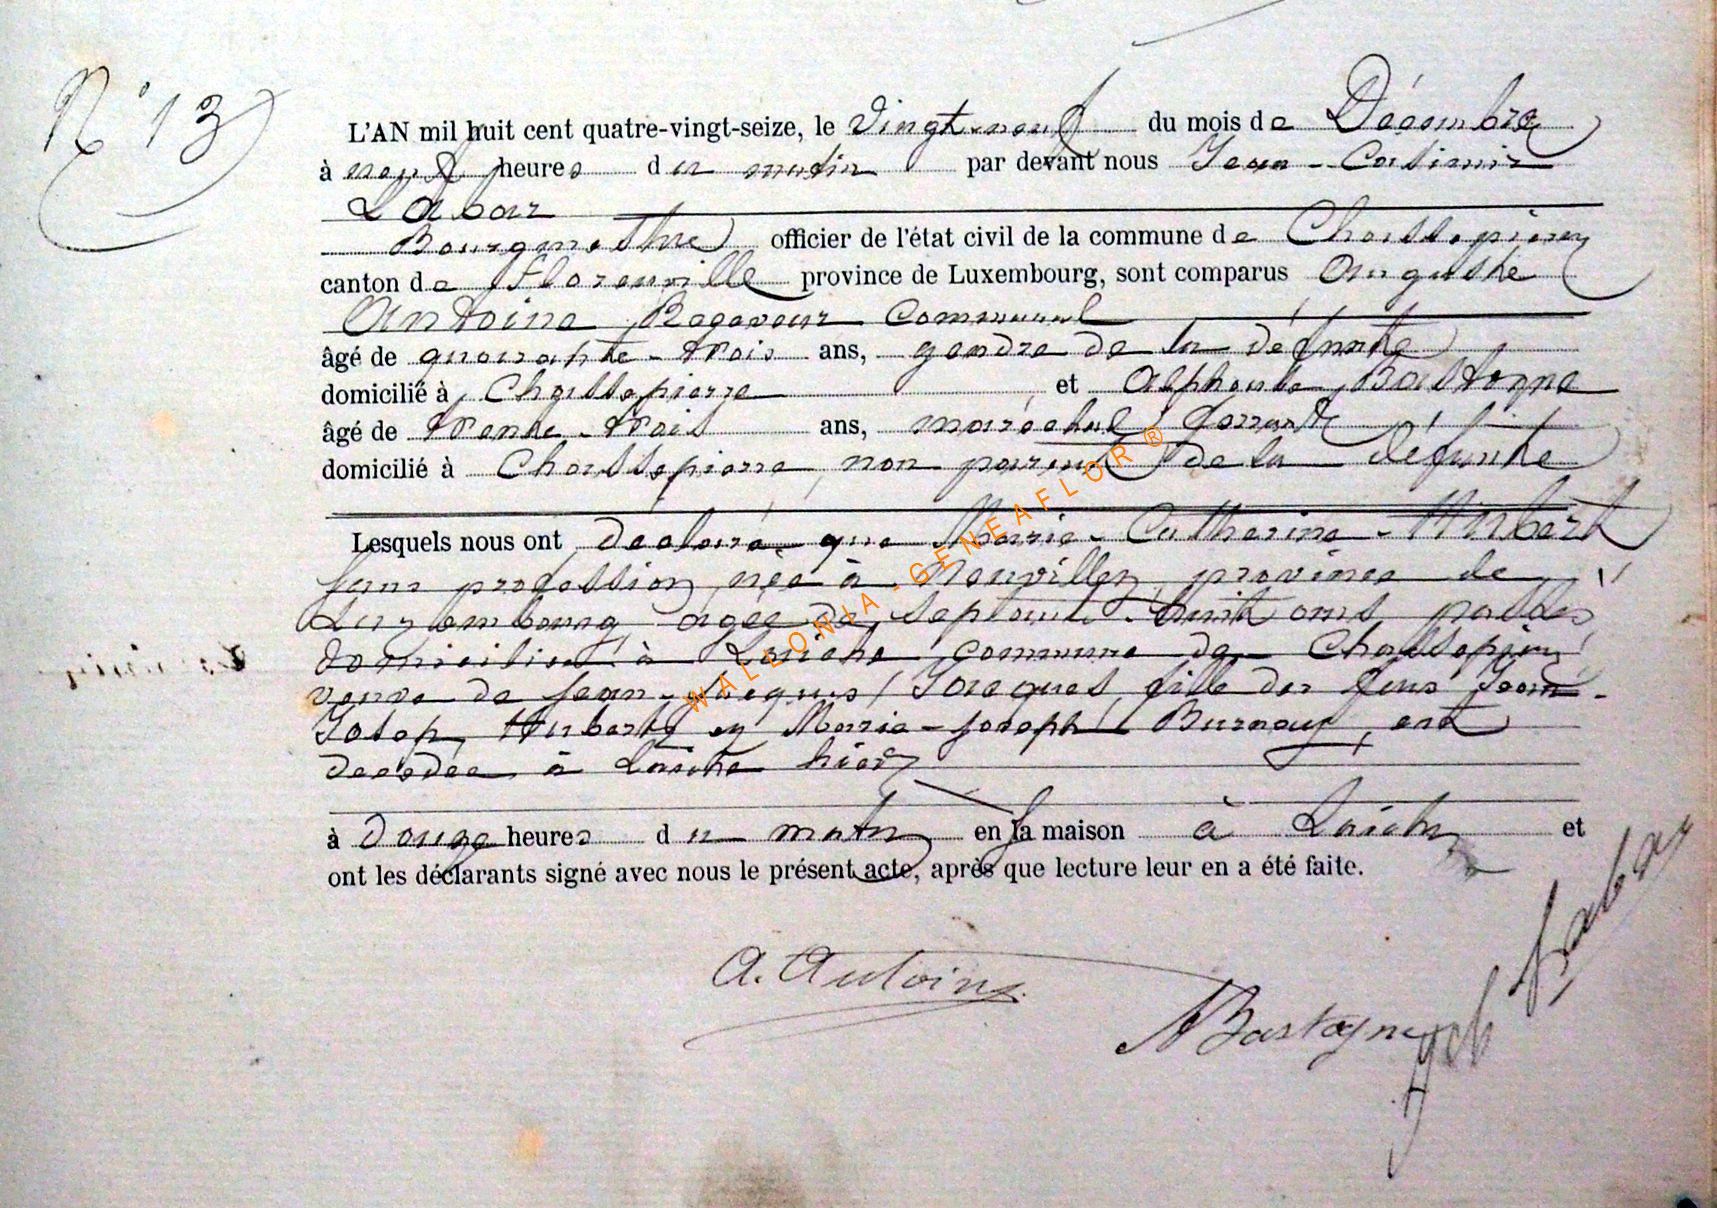 N° 13
L'AN mil huit cent quatre-vingt-seize, le Vingt-neuf du mois de Décembre
à neuf heures du matin par devant nous Jean-Casimir
Labar
Bourgmestre officier de l'état civil de la commune de Chassepierre
canton de Florenville province de Luxembourg, sont comparus Auguste
Antoine, Receveur Communal
âgé de quarante-trois ans, gendre de la défunte
domicilié à Chassepierre et Alphonse Bastogne
âgé de trente-trois ans, maréchal ferrant
domicilié à Chassepierre, non parent de la défunte
Lesquels nous ont déclaré que Marie-Catherine-Hubert
sans profession, née à Neuvillers, province de
Luxembourg, agée de septante-huit ans passés
domiciliée à Laiche commune de Chassepierre
veuve de Jean-Jacques Jacques, fille des feus Jean-
Josep Hubert et Marie-Joseph Burnauy, est
décédée à Laiche hier
à douze heures du matin en sa maison à Laiche et
ont les déclarants signé avec nous le présent acte, après que lecture leur en a été faite.
A. Antoine
A Bastogne
Labar
WALLONIA-GENEAFLOR ®